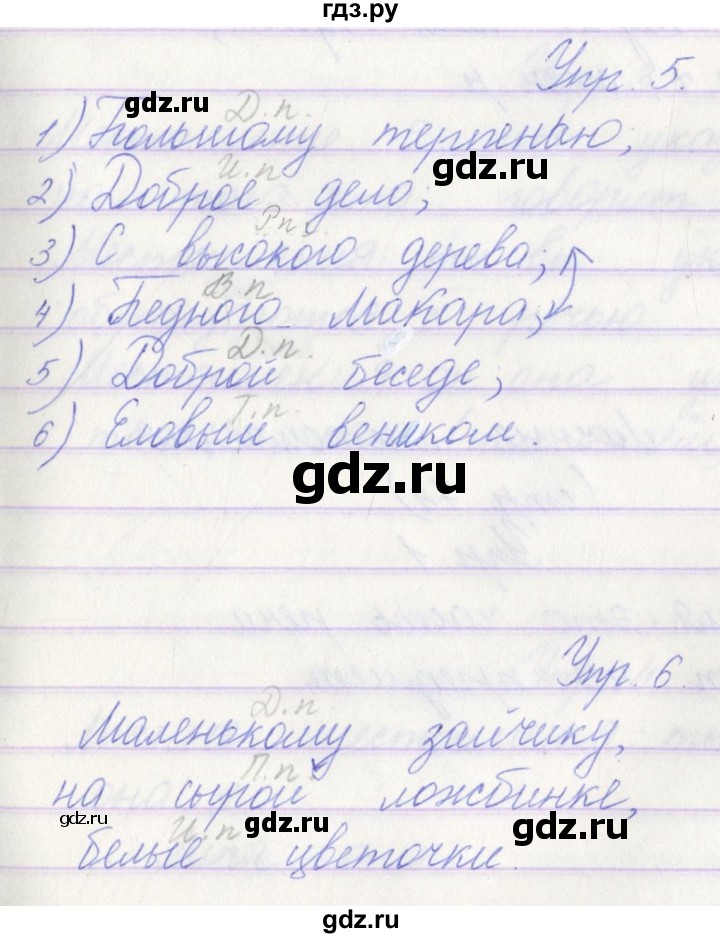 гдз.ру
Упр. 5.
Д.п.
1) Большому терпенью,
И.п
2) Доброе дело;
Р.п.
3) С высокого дерева;
В.п.
4) Бедного Макара;
Д.п.
5) Доброй беседе;
Т.п.
6) Еловым веником.
gdz.ru
gdz.ru
gdz.ru
gdz.ru
gdz.ru
Упр. 6.
Д.п
Маленькому зайчику,
П.п.
на сырой ложбинке,
gdz.ru
gdz.ru
gdz.ru
И.п
белые цветочки.
gdz.ru